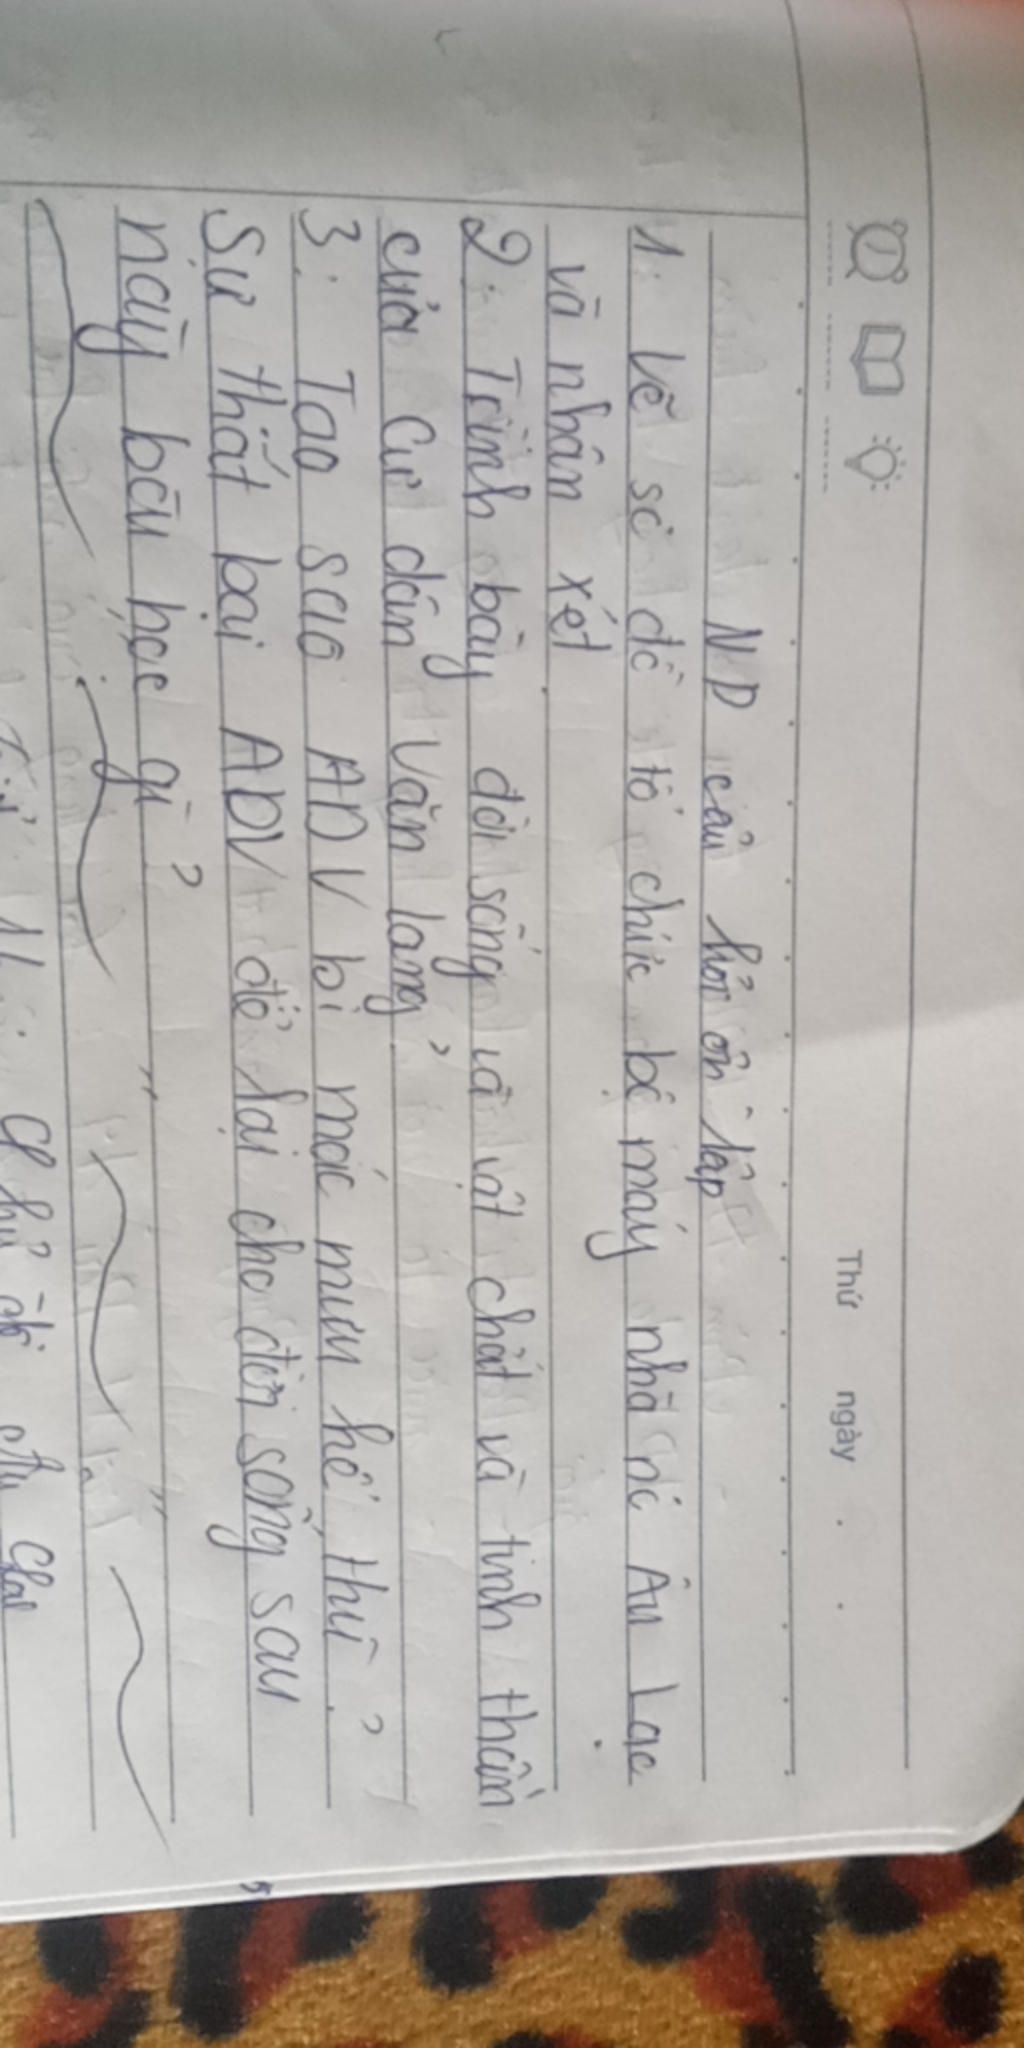 Thứ ngày
ND câu hỏi ôn lập
1. Vẽ sơ đồ tổ chức bộ máy nhà nc Âu Lạc
và nhân xét
2. Trình bày đời sống và vật chất và tinh thần
của Cư dân Văn lang?
3. Tao sao ADV bị mác mưu kẻ thù?
Sự thất bại ADV để lại cho đời sống sau
này bàu học gì?